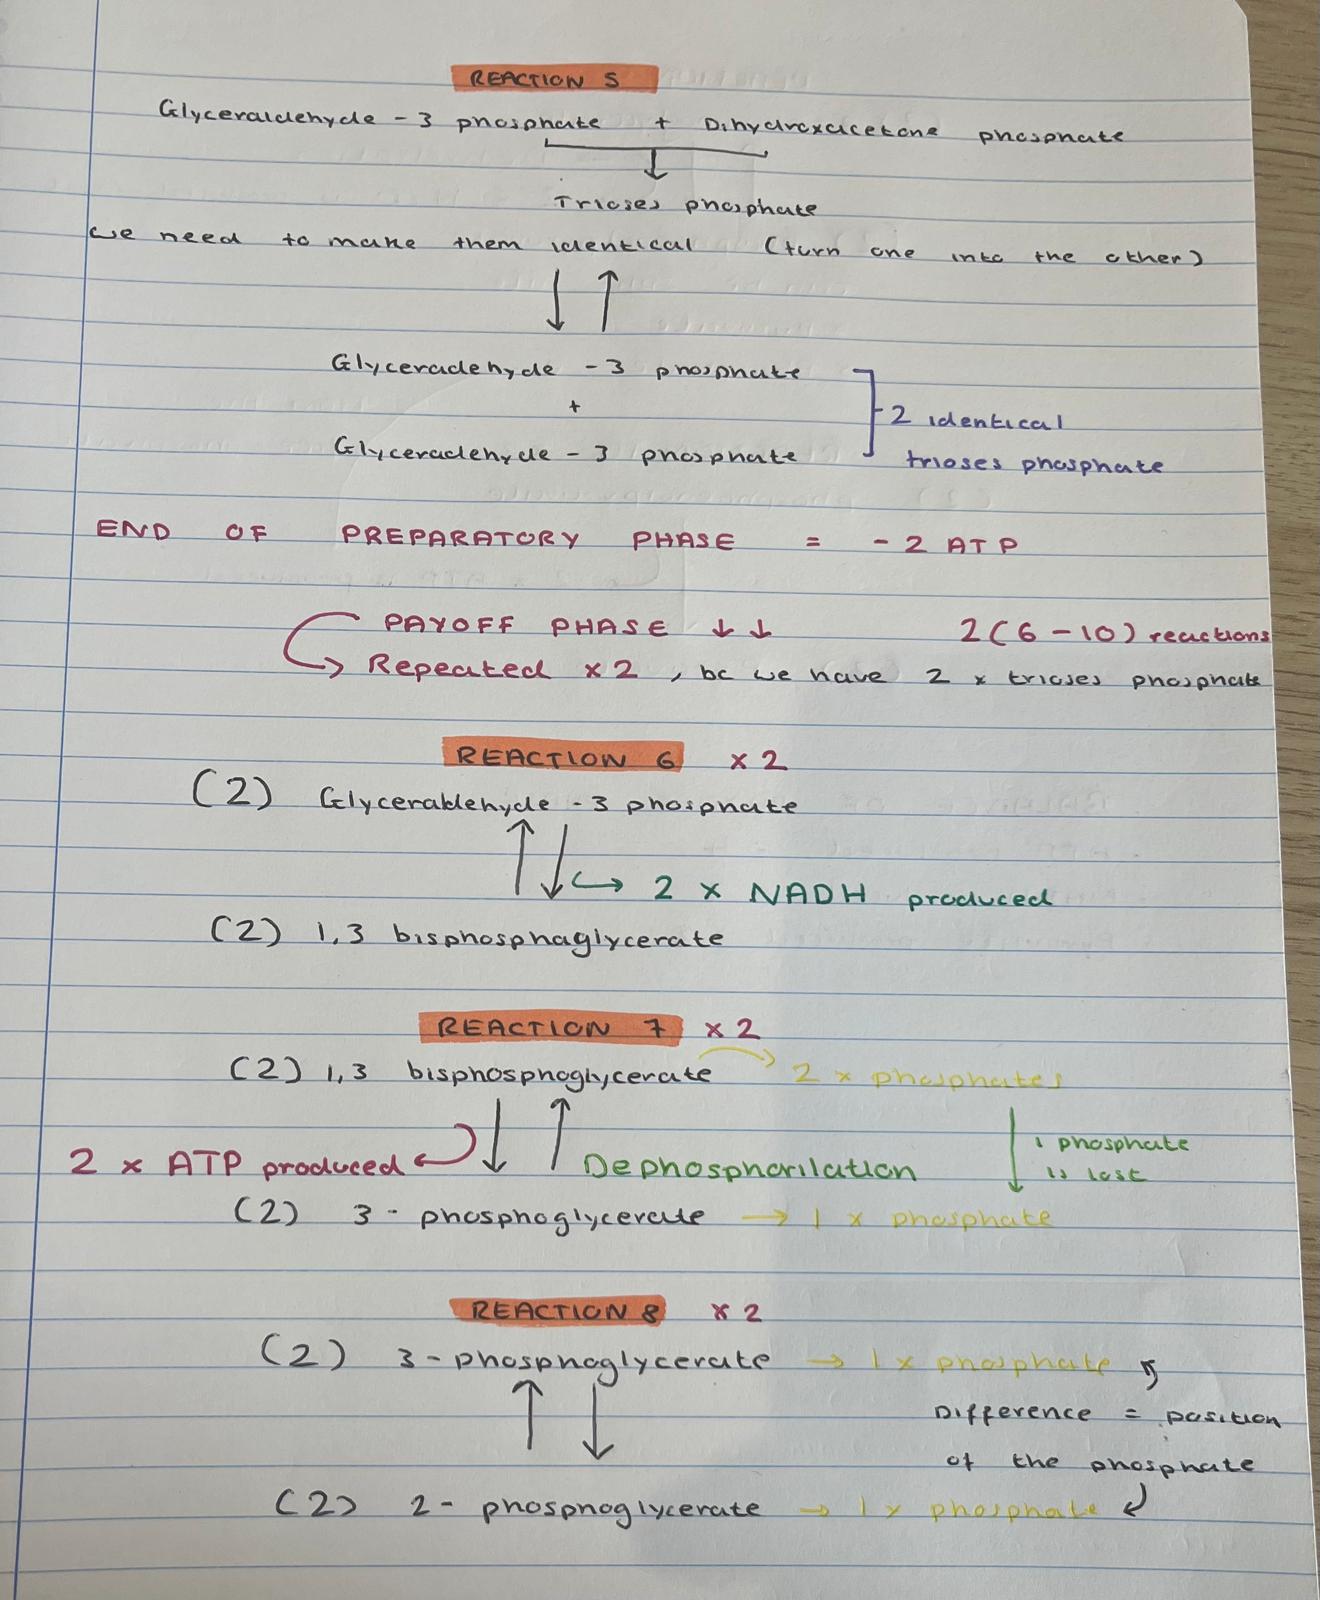 REACTION 5
Glyceraldehyde - 3 phosphate + Dihydroxacetone phosphate
Trioses phosphate
we need to make them identical (turn one into the other)
Glyceradehyde - 3 phosphate
+
Glyceradehyde - 3 phosphate
2 identical
trioses phosphate
END OF PREPARATORY PHASE = - 2 ATP
PAYOFF PHASE ↓ ↓ 2 (6 - 10) reactions
Repeated x2, bc we have 2 x trioses phosphate
REACTION 6 x 2
(2) Glyceraldehyde - 3 phosphate
2 x NADH produced
(2) 1,3 bisphosphaglycerate
REACTION 7 x 2
(2) 1,3 bisphosphoglycerate 2 x phosphates
1 phosphate
is lost
2 x ATP produced Dephosphorilation
(2) 3 - phosphoglycerate → 1 x phosphate
REACTION 8 x 2
(2) 3 - phosphoglycerate → 1 x phosphate
Difference = position
of the phosphate
(2) 2 - phosphoglycerate → 1 x phosphate